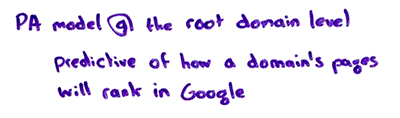 PA model @ the root domain level
predictive of how a domain's pages
will rank in Google